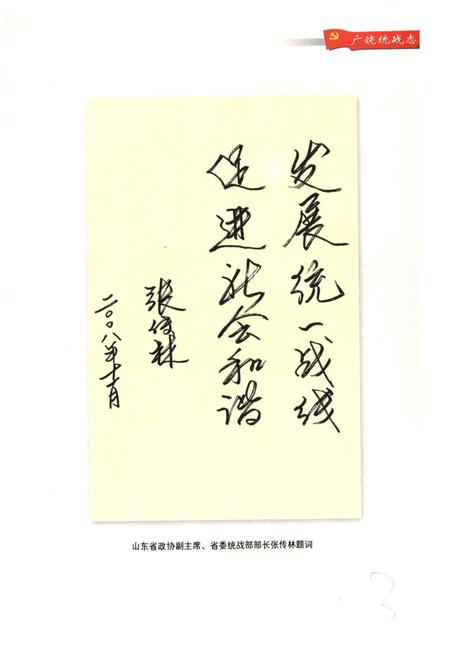 广饶统战志
发展统一战线
促进社会和谐
张传林
二〇〇八年十一月
山东省政协副主席、省委统战部部长张传林题词